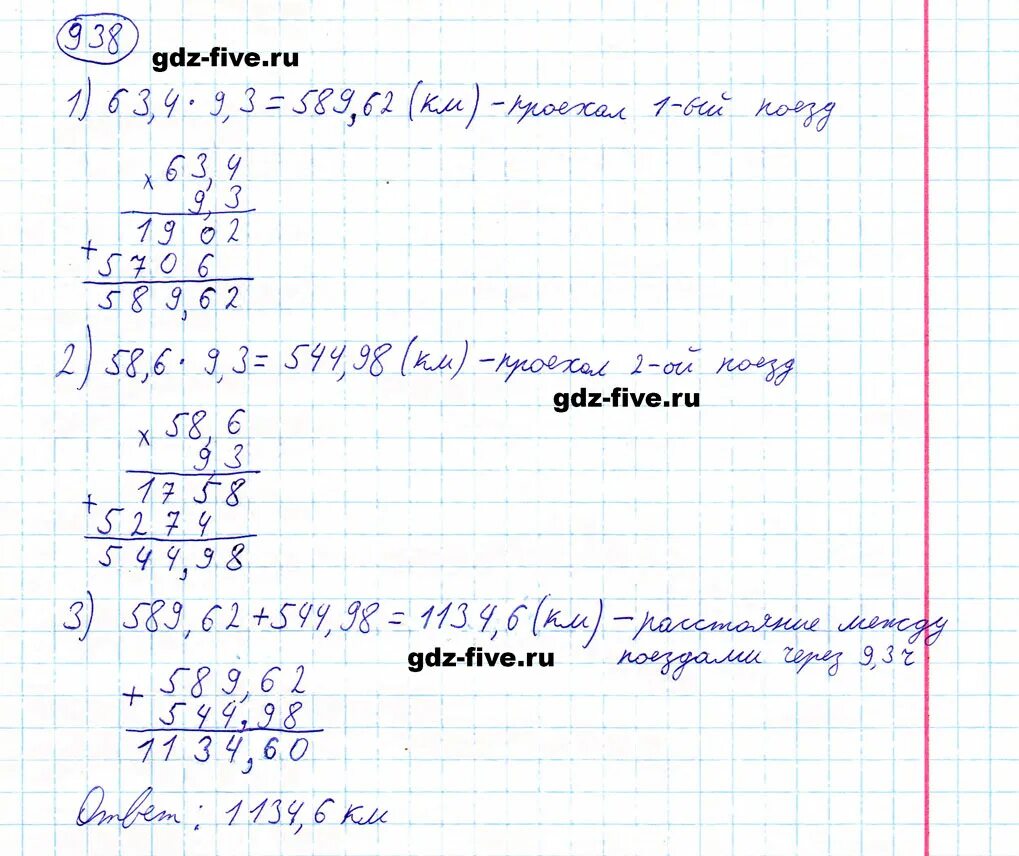 938
gdz-five.ru
1) 63,4 · 9,3 = 589,62 (км) – проехал 1-ый поезд
× 63,4
9,3
1902
+ 5706
589,62
2) 58,6 · 9,3 = 544,98 (км) – проехал 2-ой поезд
gdz-five.ru
× 58,6
9,3
1758
+ 5274
544,98
3) 589,62 + 544,98 = 1134,6 (км) – расстояние между
gdz-five.ru
поездами через 9,3 ч
+ 589,62
544,98
1134,60
Ответ: 1134,6 км